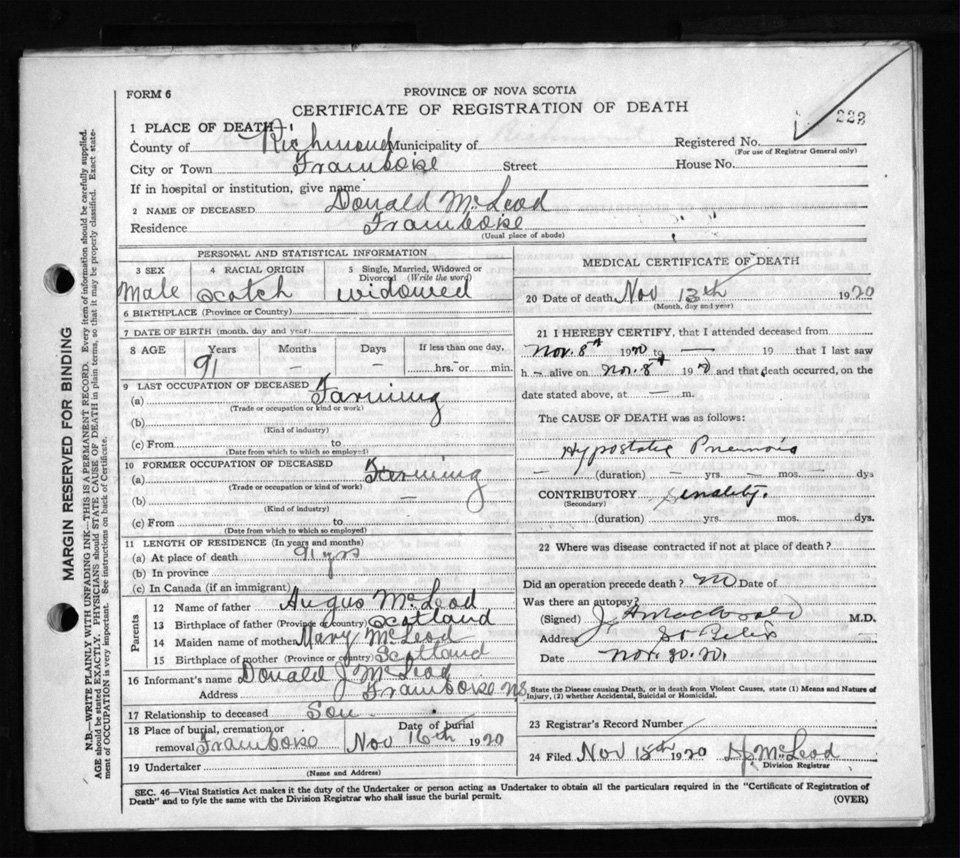 FORM 6
PROVINCE OF NOVA SCOTIA
CERTIFICATE OF REGISTRATION OF DEATH
222
1 PLACE OF DEATH—
County of Richmond Municipality of Registered No.
(For use of Registrar General only)
City or Town Framboise Street House No.
If in hospital or institution, give name
2 NAME OF DECEASED Donald McLeod
Residence Framboise
(Usual place of abode)
PERSONAL AND STATISTICAL INFORMATION
3 SEX 4 RACIAL ORIGIN 5 Single, Married, Widowed or Divorced (Write the word)
Male Scotch widowed
6 BIRTHPLACE (Province or Country)
7 DATE OF BIRTH (month, day and year)
8 AGE Years Months Days If less than one day,
91 — — hrs. or min.
9 LAST OCCUPATION OF DECEASED
(a) Farming
(Trade or occupation or kind of work)
(b)
(Kind of industry)
(c) From to
(Date from which to which so employed)
10 FORMER OCCUPATION OF DECEASED
(a) Farming
(Trade or occupation or kind of work)
(b) —
(Kind of industry)
(c) From to
(Date from which to which so employed)
11 LENGTH OF RESIDENCE (In years and months)
(a) At place of death 91 yrs
(b) In province
(c) In Canada (if an immigrant)
Parents
12 Name of father Angus McLeod
13 Birthplace of father (Province or country) Scotland
14 Maiden name of mother Mary McLeod
15 Birthplace of mother (Province or country) Scotland
16 Informant's name Donald J McLeod
Address Framboise N.S.
17 Relationship to deceased Son
18 Place of burial, cremation or removal Framboise Date of burial Nov 16th 1920
19 Undertaker
(Name and Address)
MEDICAL CERTIFICATE OF DEATH
20 Date of death Nov 13th 1920
(Month, day and year)
21 I HEREBY CERTIFY, that I attended deceased from
Nov. 8th 1920 to — 19 that I last saw
h — alive on Nov. 8th 1920 and that death occurred, on the
date stated above, at — m.
The CAUSE OF DEATH was as follows:
Hypostatic Pneumonia
— (duration) — yrs. — mos. — dys
CONTRIBUTORY Senality.
(Secondary)
(duration) yrs. mos. dys.
22 Where was disease contracted if not at place of death?
Did an operation precede death? No Date of
Was there an autopsy?
(Signed) M.D.
Address St Peters
Date Nov. 30. 20.
State the Disease causing Death, or in death from Violent Causes, state (1) Means and Nature of
Injury, (2) whether Accidental, Suicidal or Homicidal.
23 Registrar's Record Number
24 Filed Nov 15th 1920 McLeod
Division Registrar
SEC. 46—Vital Statistics Act makes it the duty of the Undertaker or person acting as Undertaker to obtain all the particulars required in the "Certificate of Registration of
Death" and to fyle the same with the Division Registrar who shall issue the burial permit.
(OVER)
MARGIN RESERVED FOR BINDING
N.B.—WRITE PLAINLY WITH UNFADING INK—THIS IS A PERMANENT RECORD. Every item of information should be carefully supplied.
AGE should be stated EXACTLY. PHYSICIANS should STATE CAUSE OF DEATH in plain terms, so that it may be properly classified. Exact state-
ment of OCCUPATION is very important. See instructions on back of Certificate.